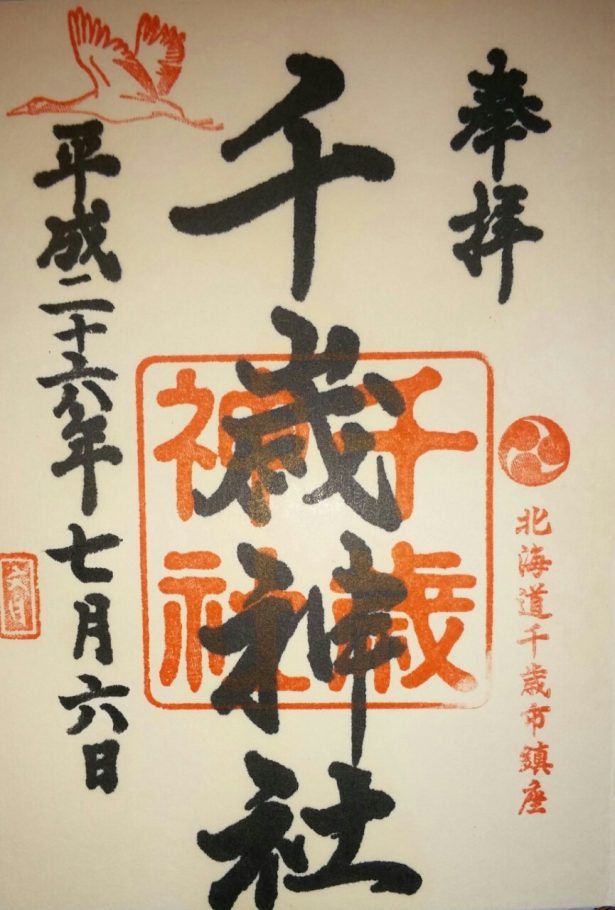 奉拝
北海道千歳市鎮座
千歳神社
千歳
神社
平成二十六年七月六日